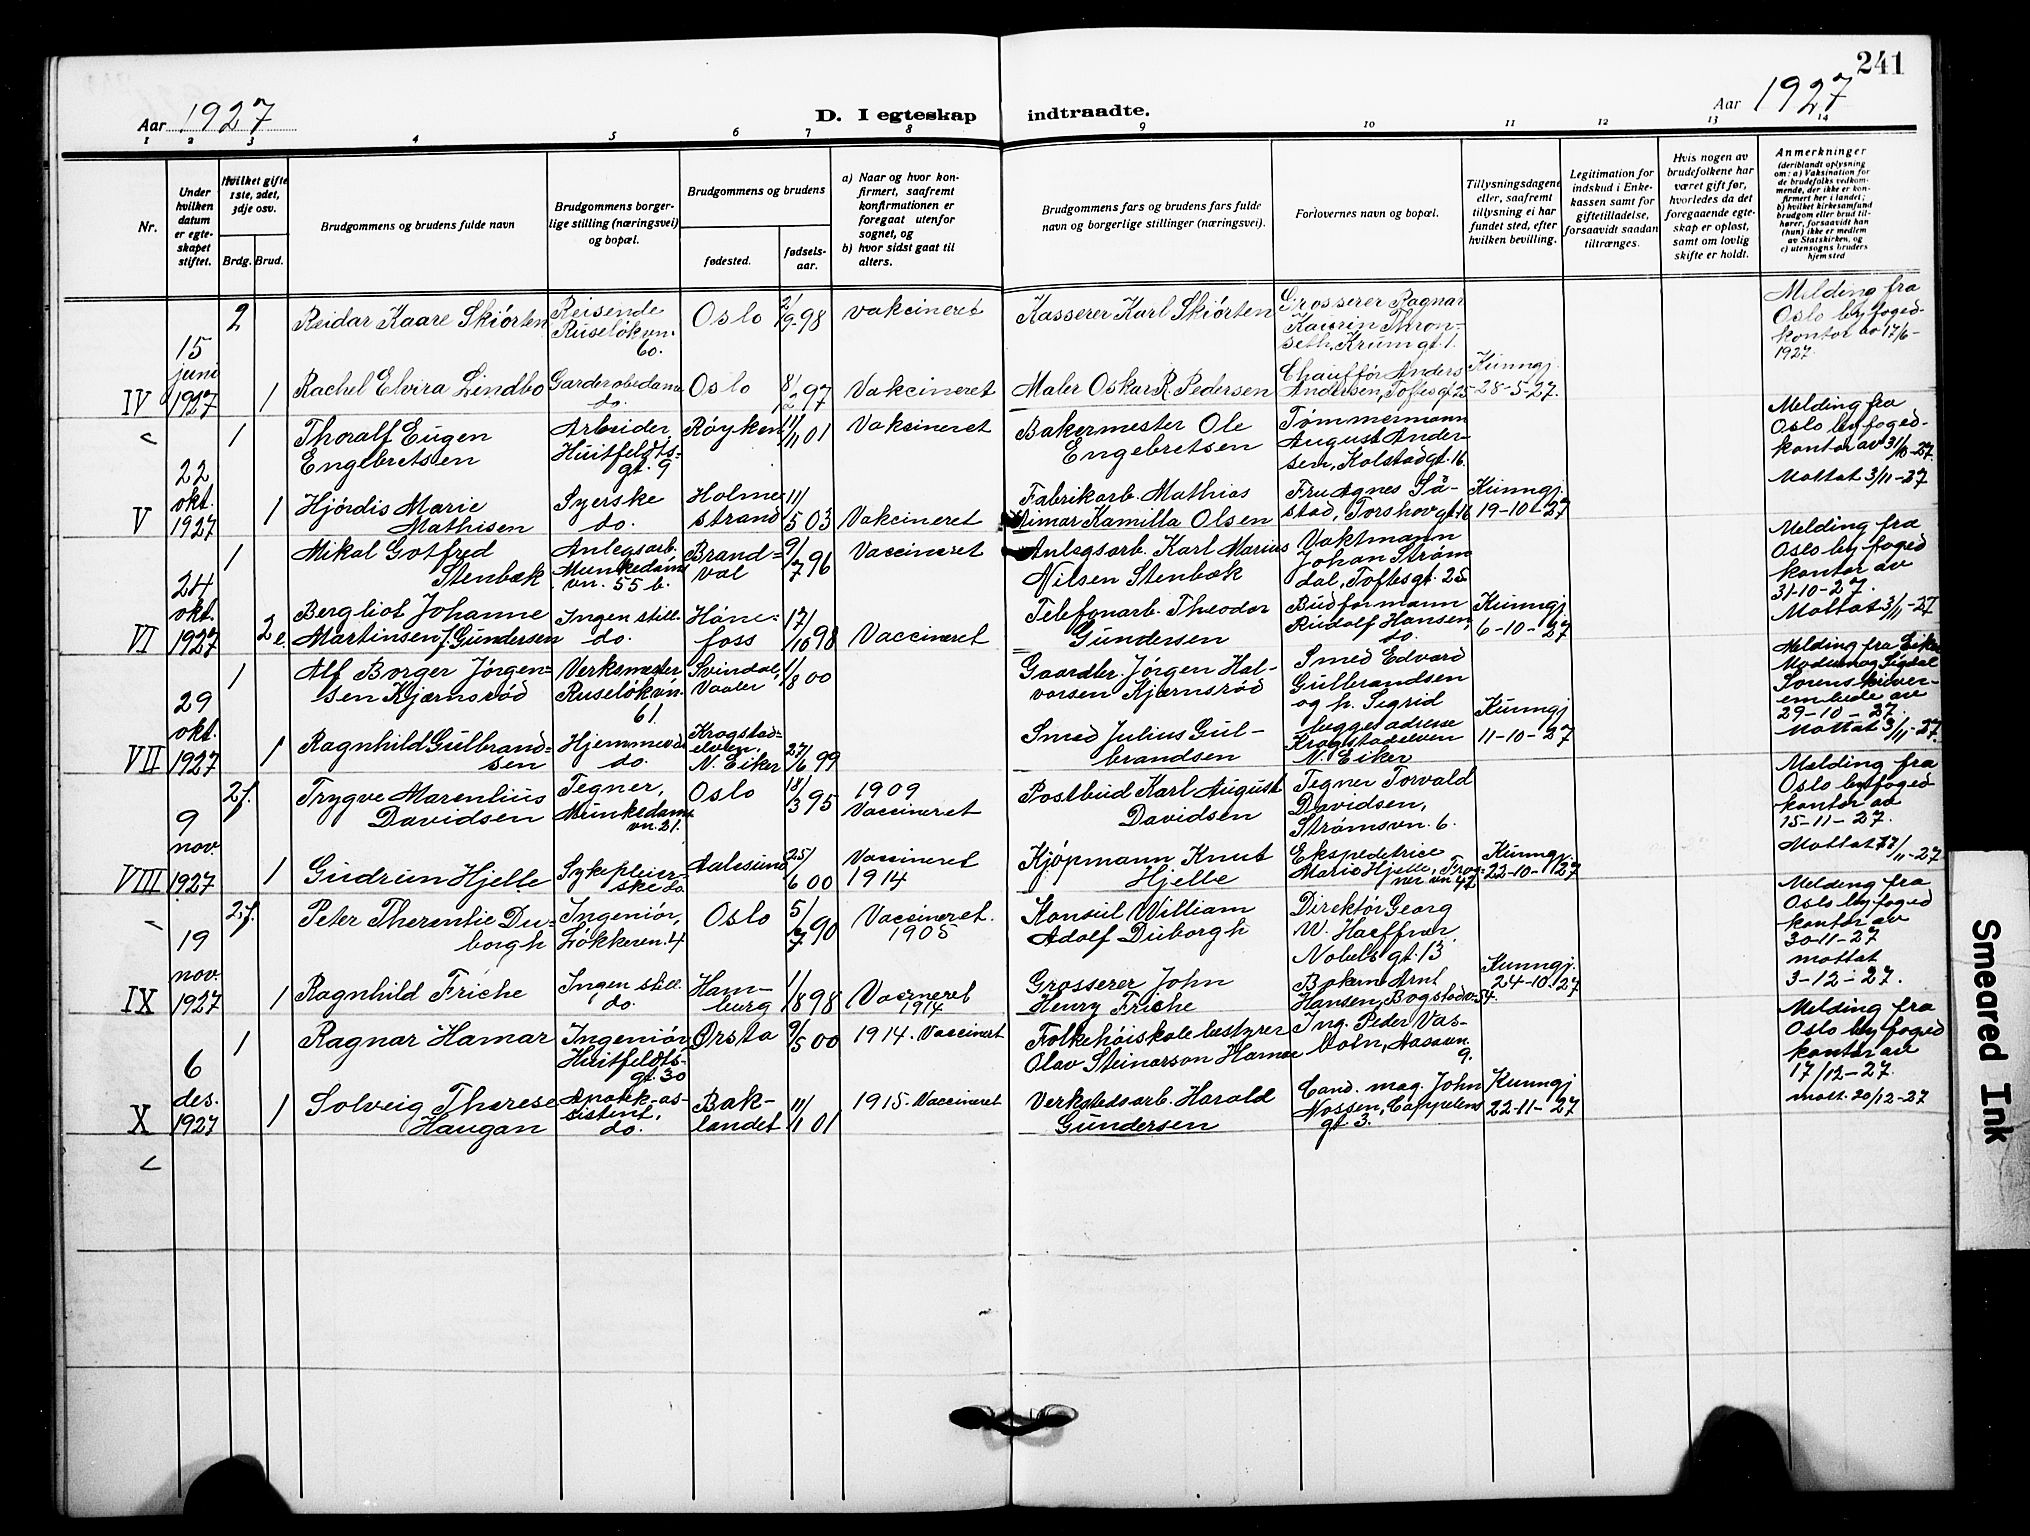 241
Aar 1927
D. I egteskap
indtraadte.
Aar 1927
1 2 3 4 5 6 7 8 9 10 11 12 13 14
Nr.
Under
hvilken
datum
er egte-
skapet
stiftet.
Hvilket gifte
1ste, 2det,
3dje osv.
Brdg. Brud.
Brudgommens og brudens fulde navn
Brudgommens borger-
lige stilling (næringsvei)
og bopæl.
Brudgommens og brudens
fødested.
fødsels-
aar.
a) Naar og hvor kon-
firmert, saafremt
konfirmationen er
foregaat utenfor
sognet, og
b) hvor sidst gaat til
alters.
Brudgommens fars og brudens fars fulde
navn og borgerlige stillinger (næringsvei).
Forlovernes navn og bopæl.
Tillysningsdagene
eller, saafremt
tillysning ei har
fundet sted, efter
hvilken bevilling.
Legitimation for
indskud i Enke-
kassen samt for
giftetilladelse,
forsaavidt saadan
tiltrænges.
Hvis nogen av
brudefolkene har
været gift før,
hvorledes da det
foregaaende egte-
skap er opløst,
samt om lovlig
skifte er holdt.
Anmerkninger
(deriblandt oplysning
om: a) Vaksination for
de brudefolks vedkom-
mende, der ikke er kon-
firmert her i landet;
b) hvilket kirkesamfund
brudgom eller brud til-
hører, forsaavidt han
(hun) ikke er medlem
av Statskirken, og
c) utensogns bruders
hjemsted
IV
15
juni
1927
2
Reidar Kaare Skiørten
Reisende
Ruseløkvn.
60.
Oslo
2/9-98
vakcineret
Kasserer Karl Skiørten
Grosserer Ragnar
Kaurin Thron-
seth, Krumgt. 1.
Melding fra
Oslo byfoged-
kontor av 17/6-
1927.
1
Rachel Elvira Lindbo
Garderobedame
do.
Oslo
8/2 97
Vakcineret
Maler Oskar R. Pedersen
Chauffør Anders
Andersen, Toftesgt. 25
Kunngj.
28-5-27.
V
22
okt.
1927
1
Thoralf Eugen
Engebretsen
Arbeider
Huitfeldts-
gt. 9
Røyken
11/11 01
Vakcineret
Bakermester Ole
Engebretsen
Tømmermann
August Ander-
sen, Kolstadgt. 16.
Melding fra
Oslo byfoged-
kontor av 31/10-27.
Mottat 3/11-27
1
Hjördis Marie
Mathisen
Syerske
do.
Holme
strand
11/5 03
Vakcineret
Fabrikarb. Mathias
Kamilla Olsen
Fru Agnes Så-
stad, Torshovgt. 16
Kunngj.
19-10-27
VI
24
okt.
1927
1
Mikal Gotfred
Stenbæk
Anlegsarb.
Munkedams
vn. 55 b.
Brand-
val
9/7 96
Vaccineret
Anlegsarb. Karl Marius
Nilsen Stenbæk
Vaktmann
Johan Strøm
dal, Toftesgt. 25
Melding fra
Oslo byfoged
kontor av
31-10-27.
Mottat 3/11-27
2 e.
Bergliot Johanne
Martinsen f. Gundersen
Ingen still.
do.
Høne-
foss
17/10 98
Vaccineret
Telefonarb. Theodor
Gundersen
Budformann
Rudolf Hansen,
do.
Kunngj.
6-10-27
VII
29
okt.
1927
1
Alf Borger Jörgen-
sen Kjærnsrød
Verksmester
Ruseløkvn.
61.
Svindal,
Vaaler
1/8 00
Gaardbr. Jörgen Hal-
vorsen Kjærnsrød
Smed Edvard
Gulbrandsen
og h. Sigrid
begges adresse
Krogstadelven
N. Eiker
Melding fra Eiker
Modum og Sigdal
Sorenskriver-
embede av
29-10-27.
Mottat 3/11-27.
1
Ragnhild Gulbrand-
sen
Hjemmevd.
do.
Krogstad-
elven,
N. Eiker
27/6 99
Smed Julius Gul-
brandsen
Kunngj
11-10-27
VIII
9
nov.
1927
2 f.
Trygve Marentius
Davidsen
Tegner,
Munkedams
vn. 21.
Oslo
18/3 95
1909
Vaccineret
Postbud Karl August
Davidsen
Tegner Torvald
Davidsen,
Strømsvn. 6.
Melding fra
Oslo byfoged
kontor av
15-11-27.
Mottat 17/11-27
1
Gudrun Hjelle
Sykepleier-
ske do
Aalesund
25/6 00
Vaccineret
1914
Kjøpmann Knut
Hjelle
Ekspeditrice
Marie Hjelle, Frog-
ner vn 42
Kunngj.
22-10-1927
IX
19
nov.
1927
2 f.
Peter Therentie Du-
borgh
Ingeniør,
Løkkeven. 4
Oslo
5/7 90
Vaccineret.
1905
Konsul William
Adolf Duborgh
Direktør Georg
W. Haffner
Nobels gt. 13.
Melding fra
Oslo byfoged
kontor av
30-11-27
mottat
3-12-27.
1
Ragnhild Friche
Ingen still.
do.
Ham-
burg
1/8 98
Vaccineret
1914
Grosserer John
Henry Friche
Bokerm Arnt
Hansen, Bogstadv. 54.
Kunngj.
24-10.27
X
6
des.
1927
1
Ragnar Hamar
Ingeniør
Huitfeldts-
gt. 30
Ørsta
9/5 00
1914. Vaccinert
Folkehøiskolebestyrer
Olav Steinarson Hamar
Ing. Peder Vas-
botn, Aasavn.
9.
Melding fra
Oslo byfoged
kontor av
17/12-27.
mott. 20/12-27
1
Solveig Therese
Haugan
Apotek-as-
sistent.
do.
Bak-
landet
11/1 01
1915. Vaccineret
Verkstedsarb. Harald
Gundersen
Cand. mag. John
Nossen, Cappelens
gt. 3.
Kunngj
22-11-27
Smeared Ink